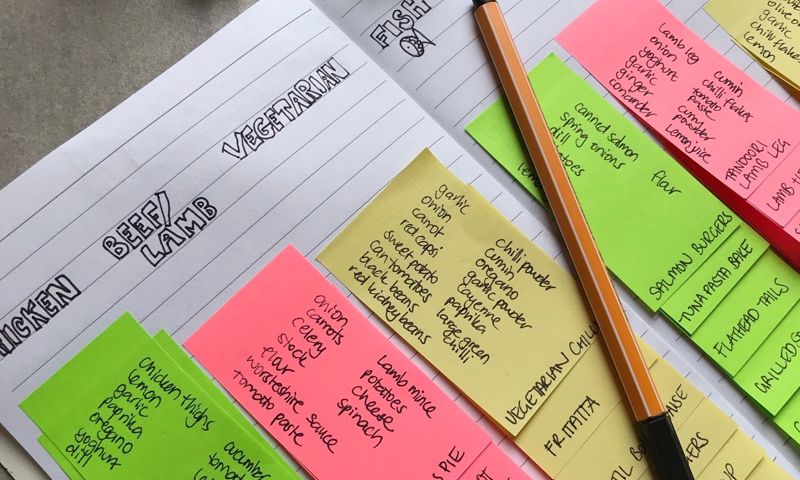 FISH
VEGETARIAN
BEEF/
LAMB
chicken thighs
lemon
garlic
paprika
oregano
yoghurt
dill
cucumber
onion
carrots
celery
stock
flar
worsteshire sauce
tomato paste
lamb mince
potatoes
cheese
spinach
PIE
garlic
onion
carrot
red caps
sweet potato
can tomatoes
black beans
red kidney beans
chilli powder
cumin
oregano
garlic powder
cayenne
paprika
large green
chilli
VEGETARIAN CHILLI
FRITTATA
canned salmon
spring onions
dill
flar
SALMON BURGERS
TUNA PASTA BAKE
FLATHEAD TAILS
GRILLED
lamb leg
onion
yoghurt
garlic
ginger
coriander
cumin
chilli flakes
tomato
paste
powder
lemon juice
TANDOORI
LAMB LEG
LAMB
garlic
chilli flakes
lemon